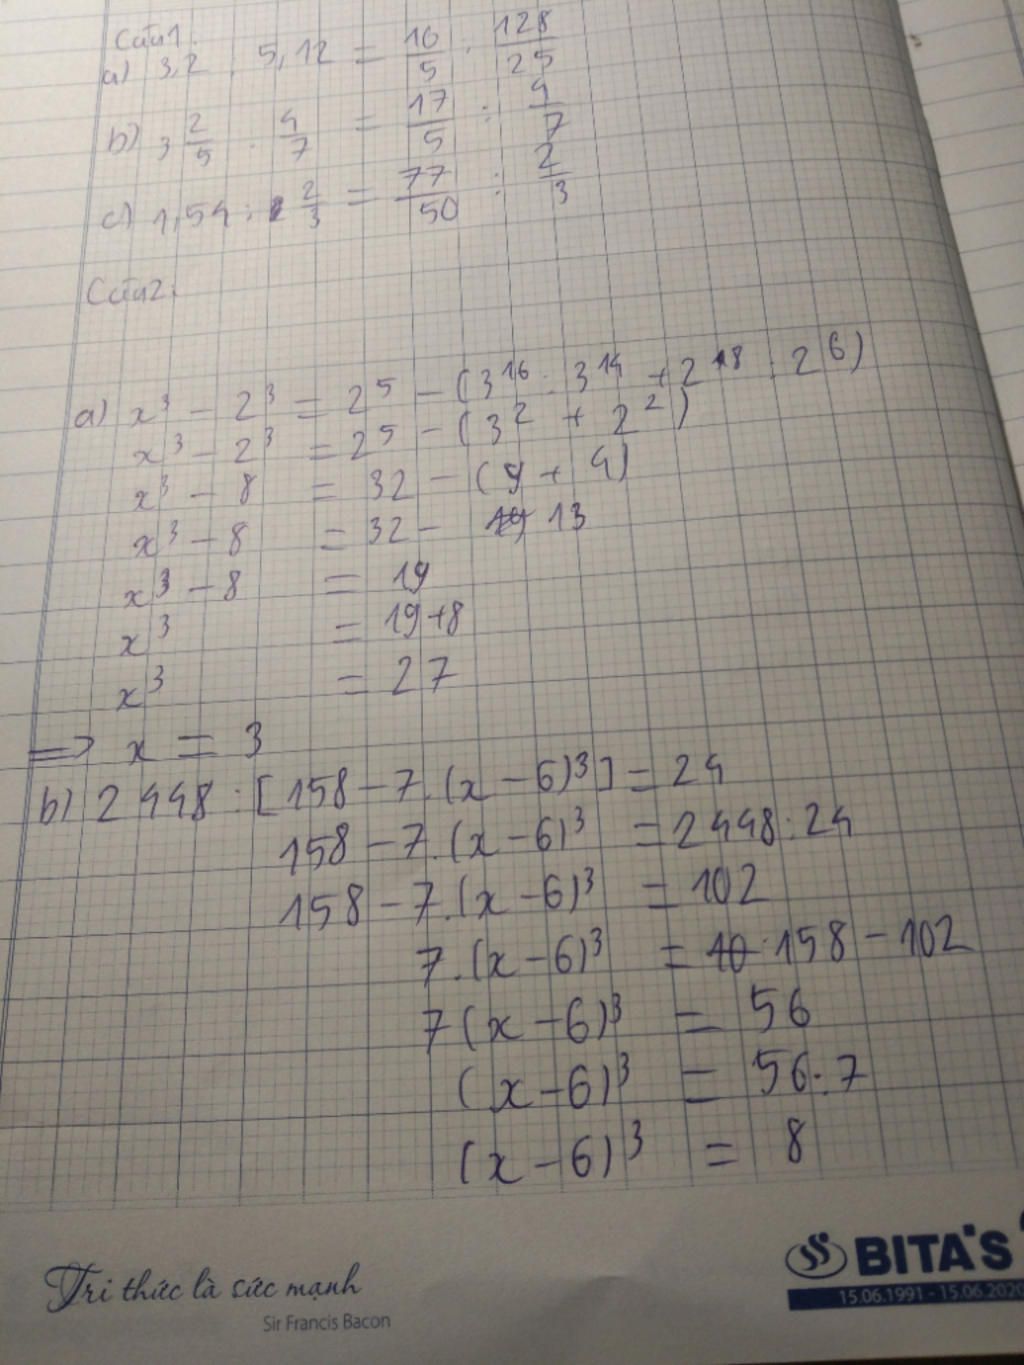 Câu1.
a) 3,2 : 5,12 = 16/5 : 128/25
b) 3 2/5 : 4/7 = 17/5 : 4/7
c) 1,54 : 2/3 = 77/50 : 2/3
Câu2.
a) x³ - 2³ = 2⁵ - (3¹⁶ : 3¹⁴ + 2¹⁸ : 2⁶)
x³ - 2³ = 2⁵ - (3² + 2²)
x³ - 8 = 32 - (9 + 4)
x³ - 8 = 32 - 13
x³ - 8 = 19
x³ = 19+8
x³ = 27
=> x = 3
b) 2448 : [158 - 7.(x - 6)³] = 24
158 - 7.(x - 6)³ = 2448 : 24
158 - 7.(x - 6)³ = 102
7.(x - 6)³ = 10 158 - 102
7(x - 6)³ = 56
(x - 6)³ = 56:7
(x - 6)³ = 8
Tri thức là sức mạnh
Sir Francis Bacon
BITA'S
15.06.1991 - 15.06.2020